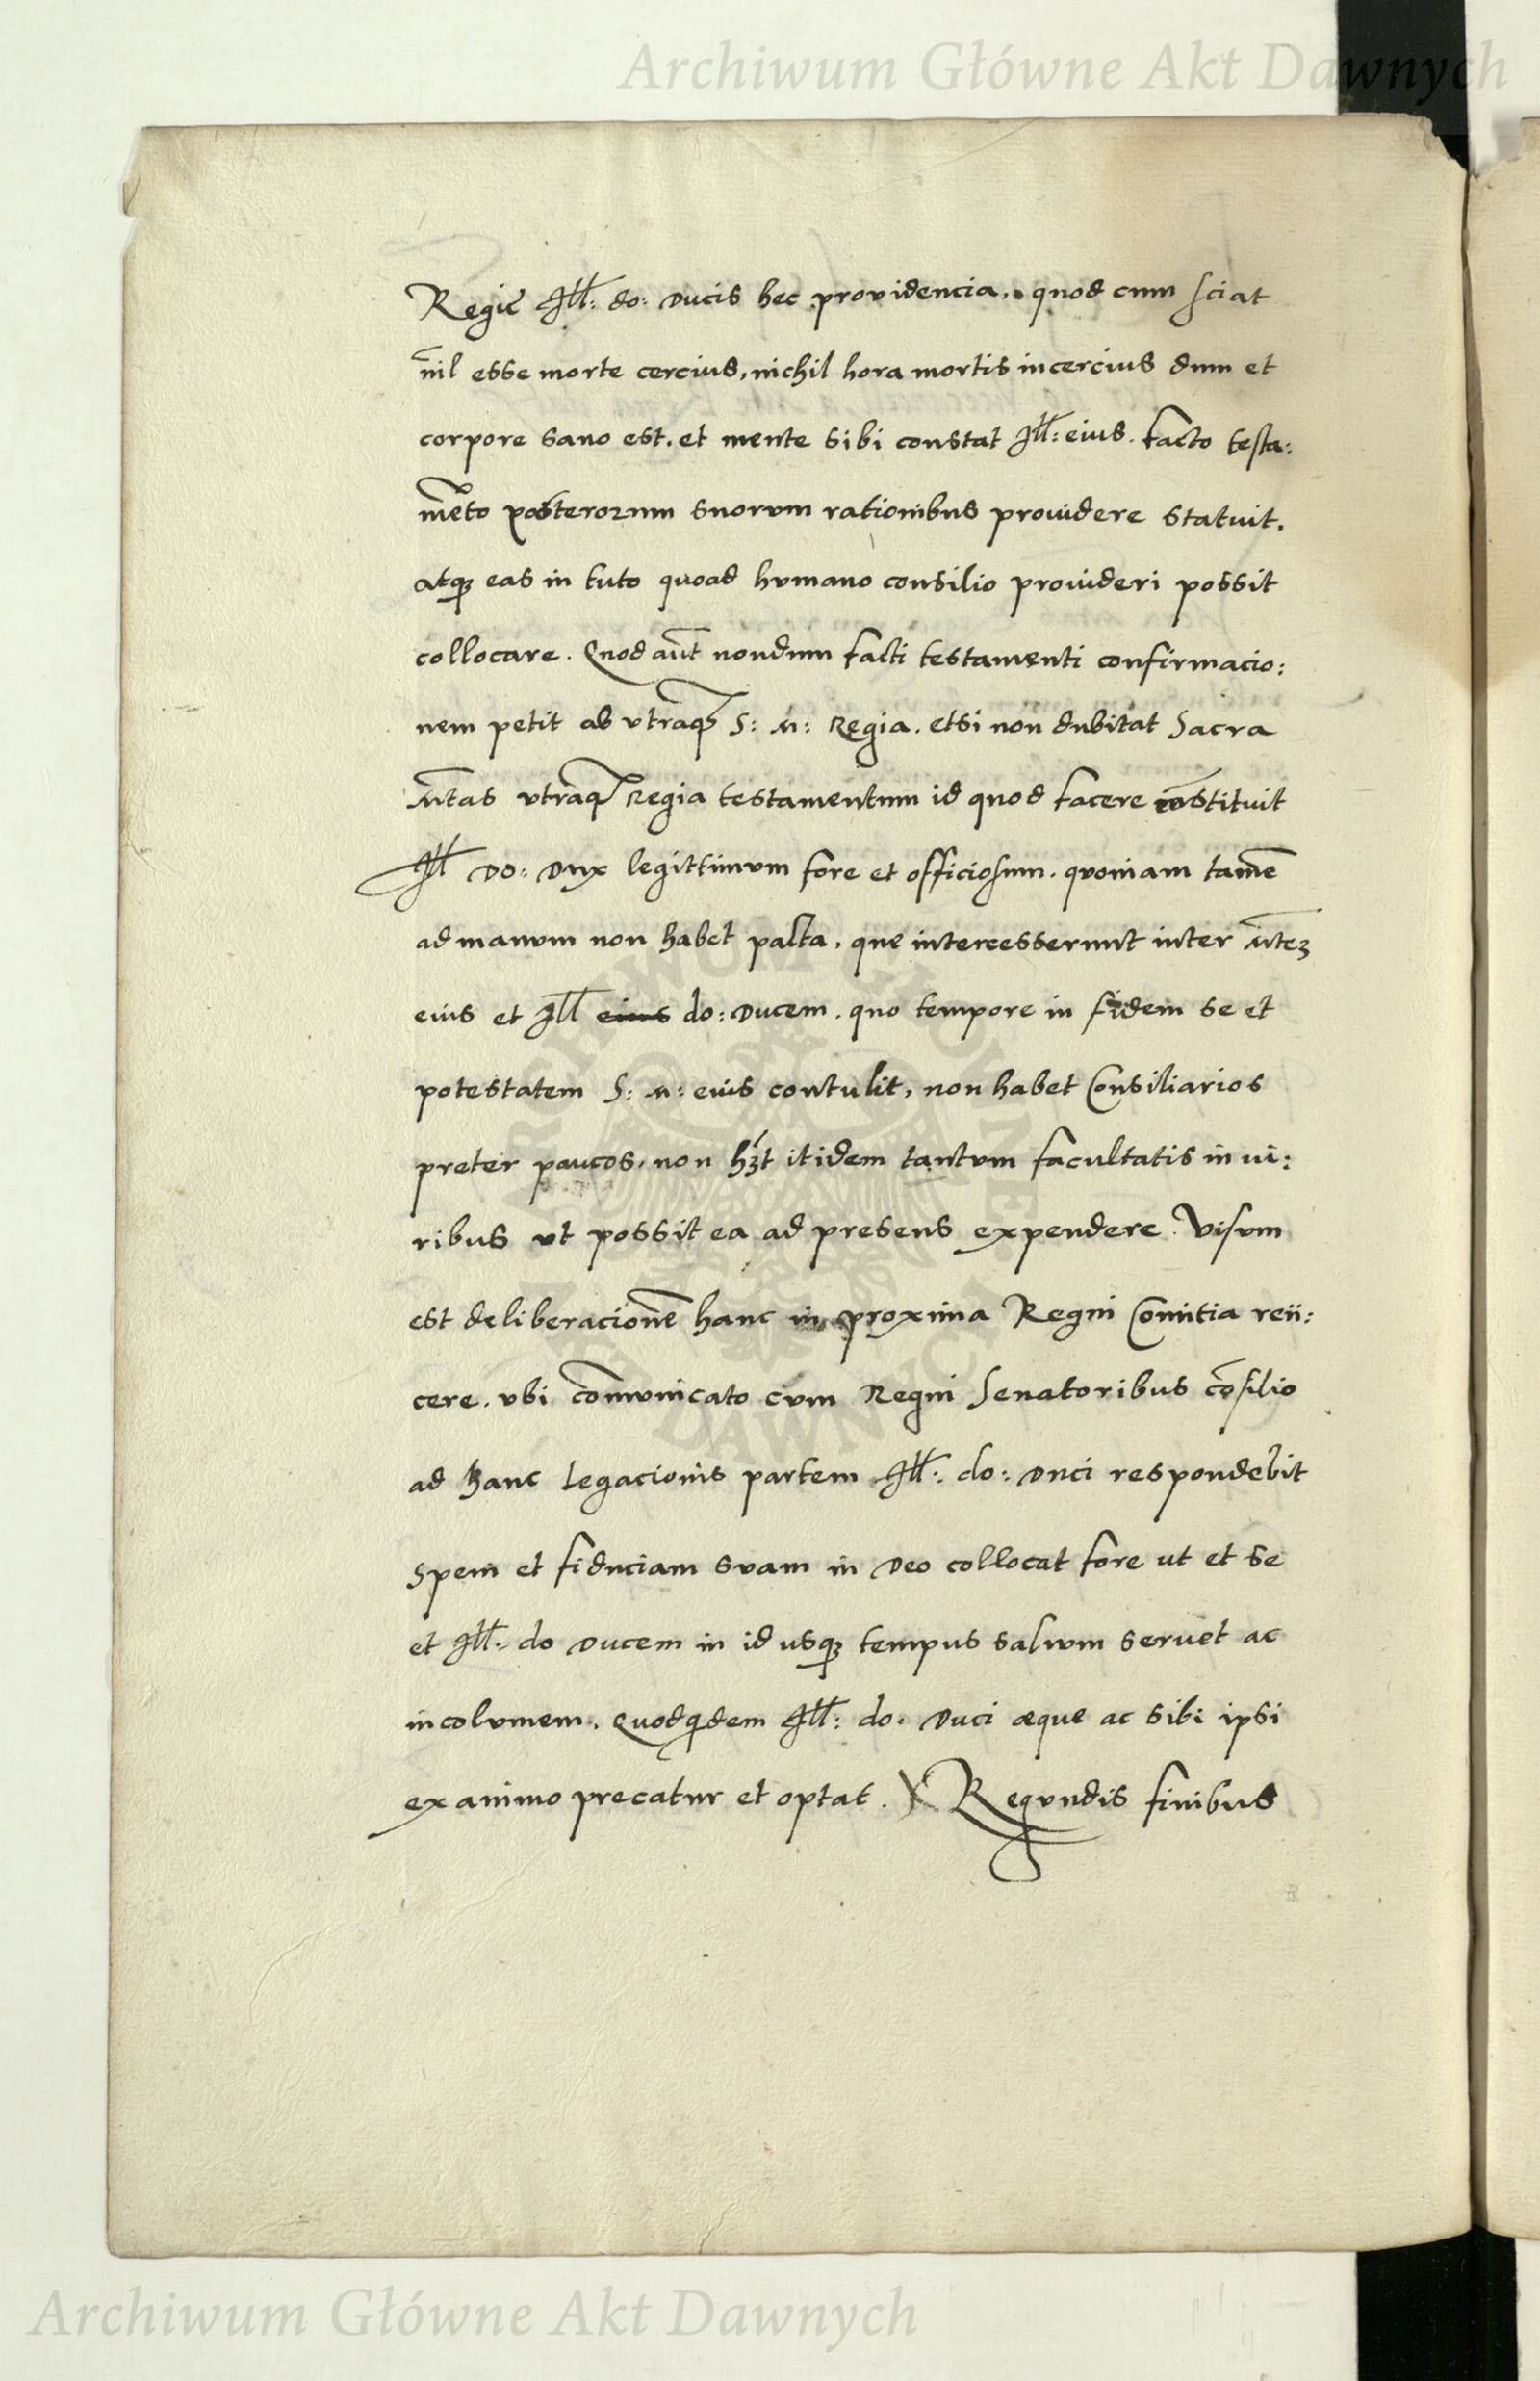 Archiwum Główne Akt Dawnych
Regie Ill: do: Ducis hec providencia, quod cum sciat
nil esse morte cercius, nichil hora mortis incercius dum et
corpore sano est, et mente sibi constat Ill: eius. facto testa:
mēto posterorum suorum rationibus providere statuit.
atqȝ eas in tuto quoad humano consilio provideri possit
collocare. Quod aūt nondum facti testamenti confirmacio:
nem petit ab utraqȝ S: M: Regia. etsi non dubitat Sacra
Mtas utraqȝ Regia testamentum id quod facere cōstituit
Ill Do: Dux legittimum fore et officiosum. quoniam tamē
ad manum non habet pacta, que intercesserunt inter Mteȝ
eius et Ill eius do: Ducem. quo tempore in fidem se et
potestatem S: M: eius contulit, non habet Consiliarios
preter paucos, non hȝt itidem tantum facultatis in vi:
ribus ut possit ea ad presens expendere. Visum
est deliberacionē hanc in proxima Regni Comitia reii:
cere. ubi cōmunicato cum Regni Senatoribus cōsilio
ad hanc legacionis partem Ill: do: Duci respondebit
Spem et fiduciam suam in Deo collocat fore ut et se
et Ill: do Ducem in id usqȝ tempus salvum servet ac
incolumem. Quodqidem Ill: do. Duci æque ac sibi ipsi
ex animo precatur et optat. Regundis finibus
Archiwum Główne Akt Dawnych